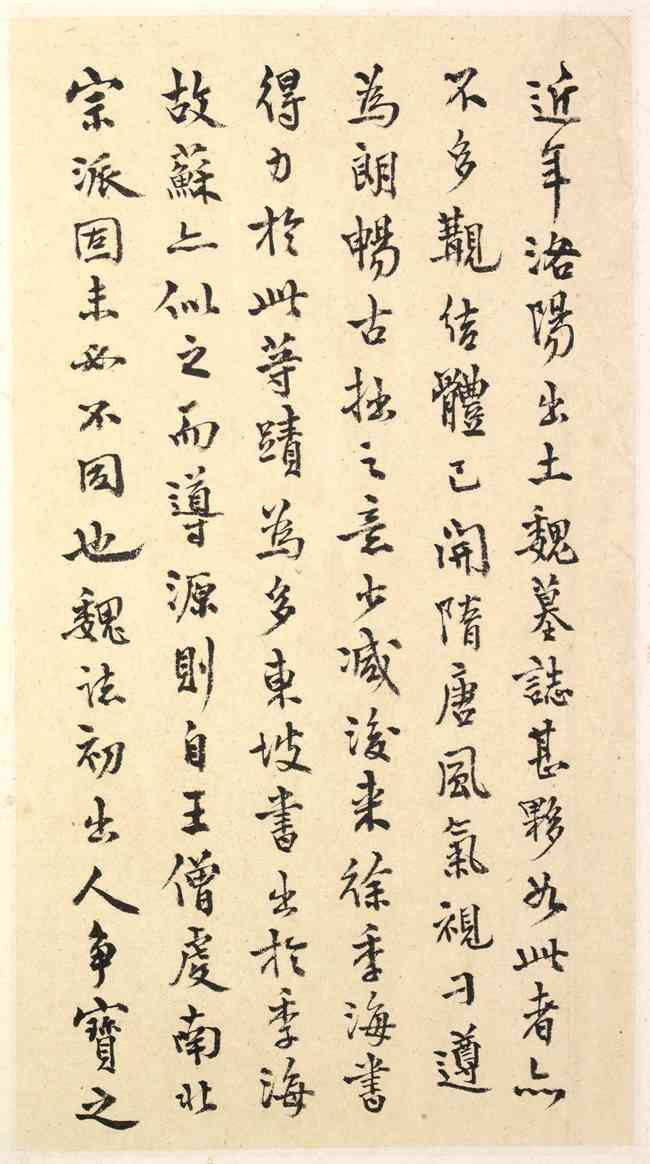 近年洛陽出土魏墓誌甚夥如此者亦
不多覯結體已開隋唐風氣視刁遵
為朗暢古拙之意少減後來徐季海書
得力於此等蹟為多東坡書出於季海
故蘇亦似之而導源則自王僧虔南北
宗派固未必不同也魏誌初出人爭寶之